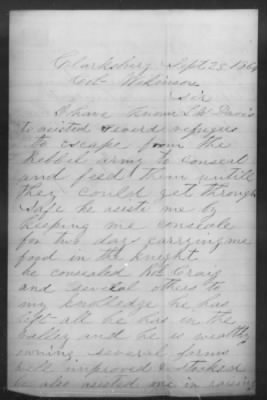 Clarksburg Sept 25 1864
Col Wilkinson
Sir
I have known S W Davis
to asisted several refugees
to escape from the
Rebbel army to conseal
and feed them untill
they could get through
Safe he asiste me by
keeping me conseale
for two days carrying me
food in the knight
he consealed Craig
and several others to
my knolledge he has
left all he has in the
valley and he is wealthy
owning several farms
well improved & stocked
he also assisted me in raising